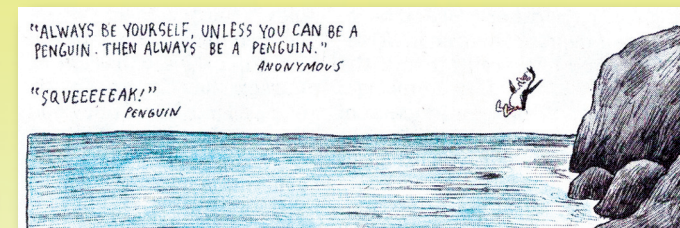 "ALWAYS BE YOURSELF, UNLESS YOU CAN BE A
PENGUIN. THEN ALWAYS BE A PENGUIN."
ANONYMOUS
"SQVEEEEEAK!"
PENGUIN